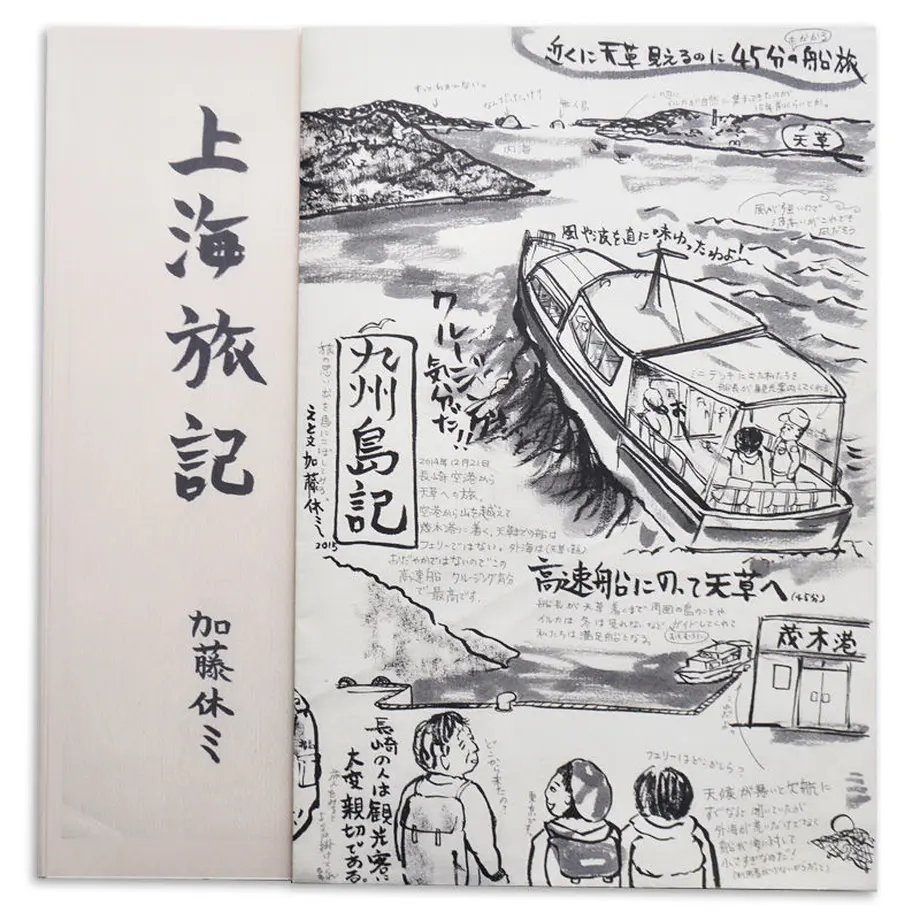 上海旅記
加藤休ミ
近くに天草見えるのに45分の船旅
もかかる
なんだったっけ?
無人島
内海
天草
風が強いので
風や波を直に味わったわよ!
ミニデッキに立った私たちを
船長が観光案内してくれる
クルージング
気分だ!!
九州島記
えと文 加藤休ミ
2015
2014年12月21日
長崎空港から
天草への旅。
空港から山を越えて
茂木港に着く。天草までの船は
フェリーではない。外海は
おだやかではないのでこの
高速船 クルージング気分
で最高です。
高速船にのって天草へ(45分)
船長が天草着くまで周囲の島のことや
イルカは冬は見れないなど、ガイドしてくれて
私たちは満足船となる。
茂木港
長崎の人は観光客に
大変親切である。
どこから来たの?
東京です。
フェリーはどこかしら?
天候が悪いと欠航に
すぐなると聞いていたが
外海が荒いだけでなく
船が海に対して
小さすぎなのだ!